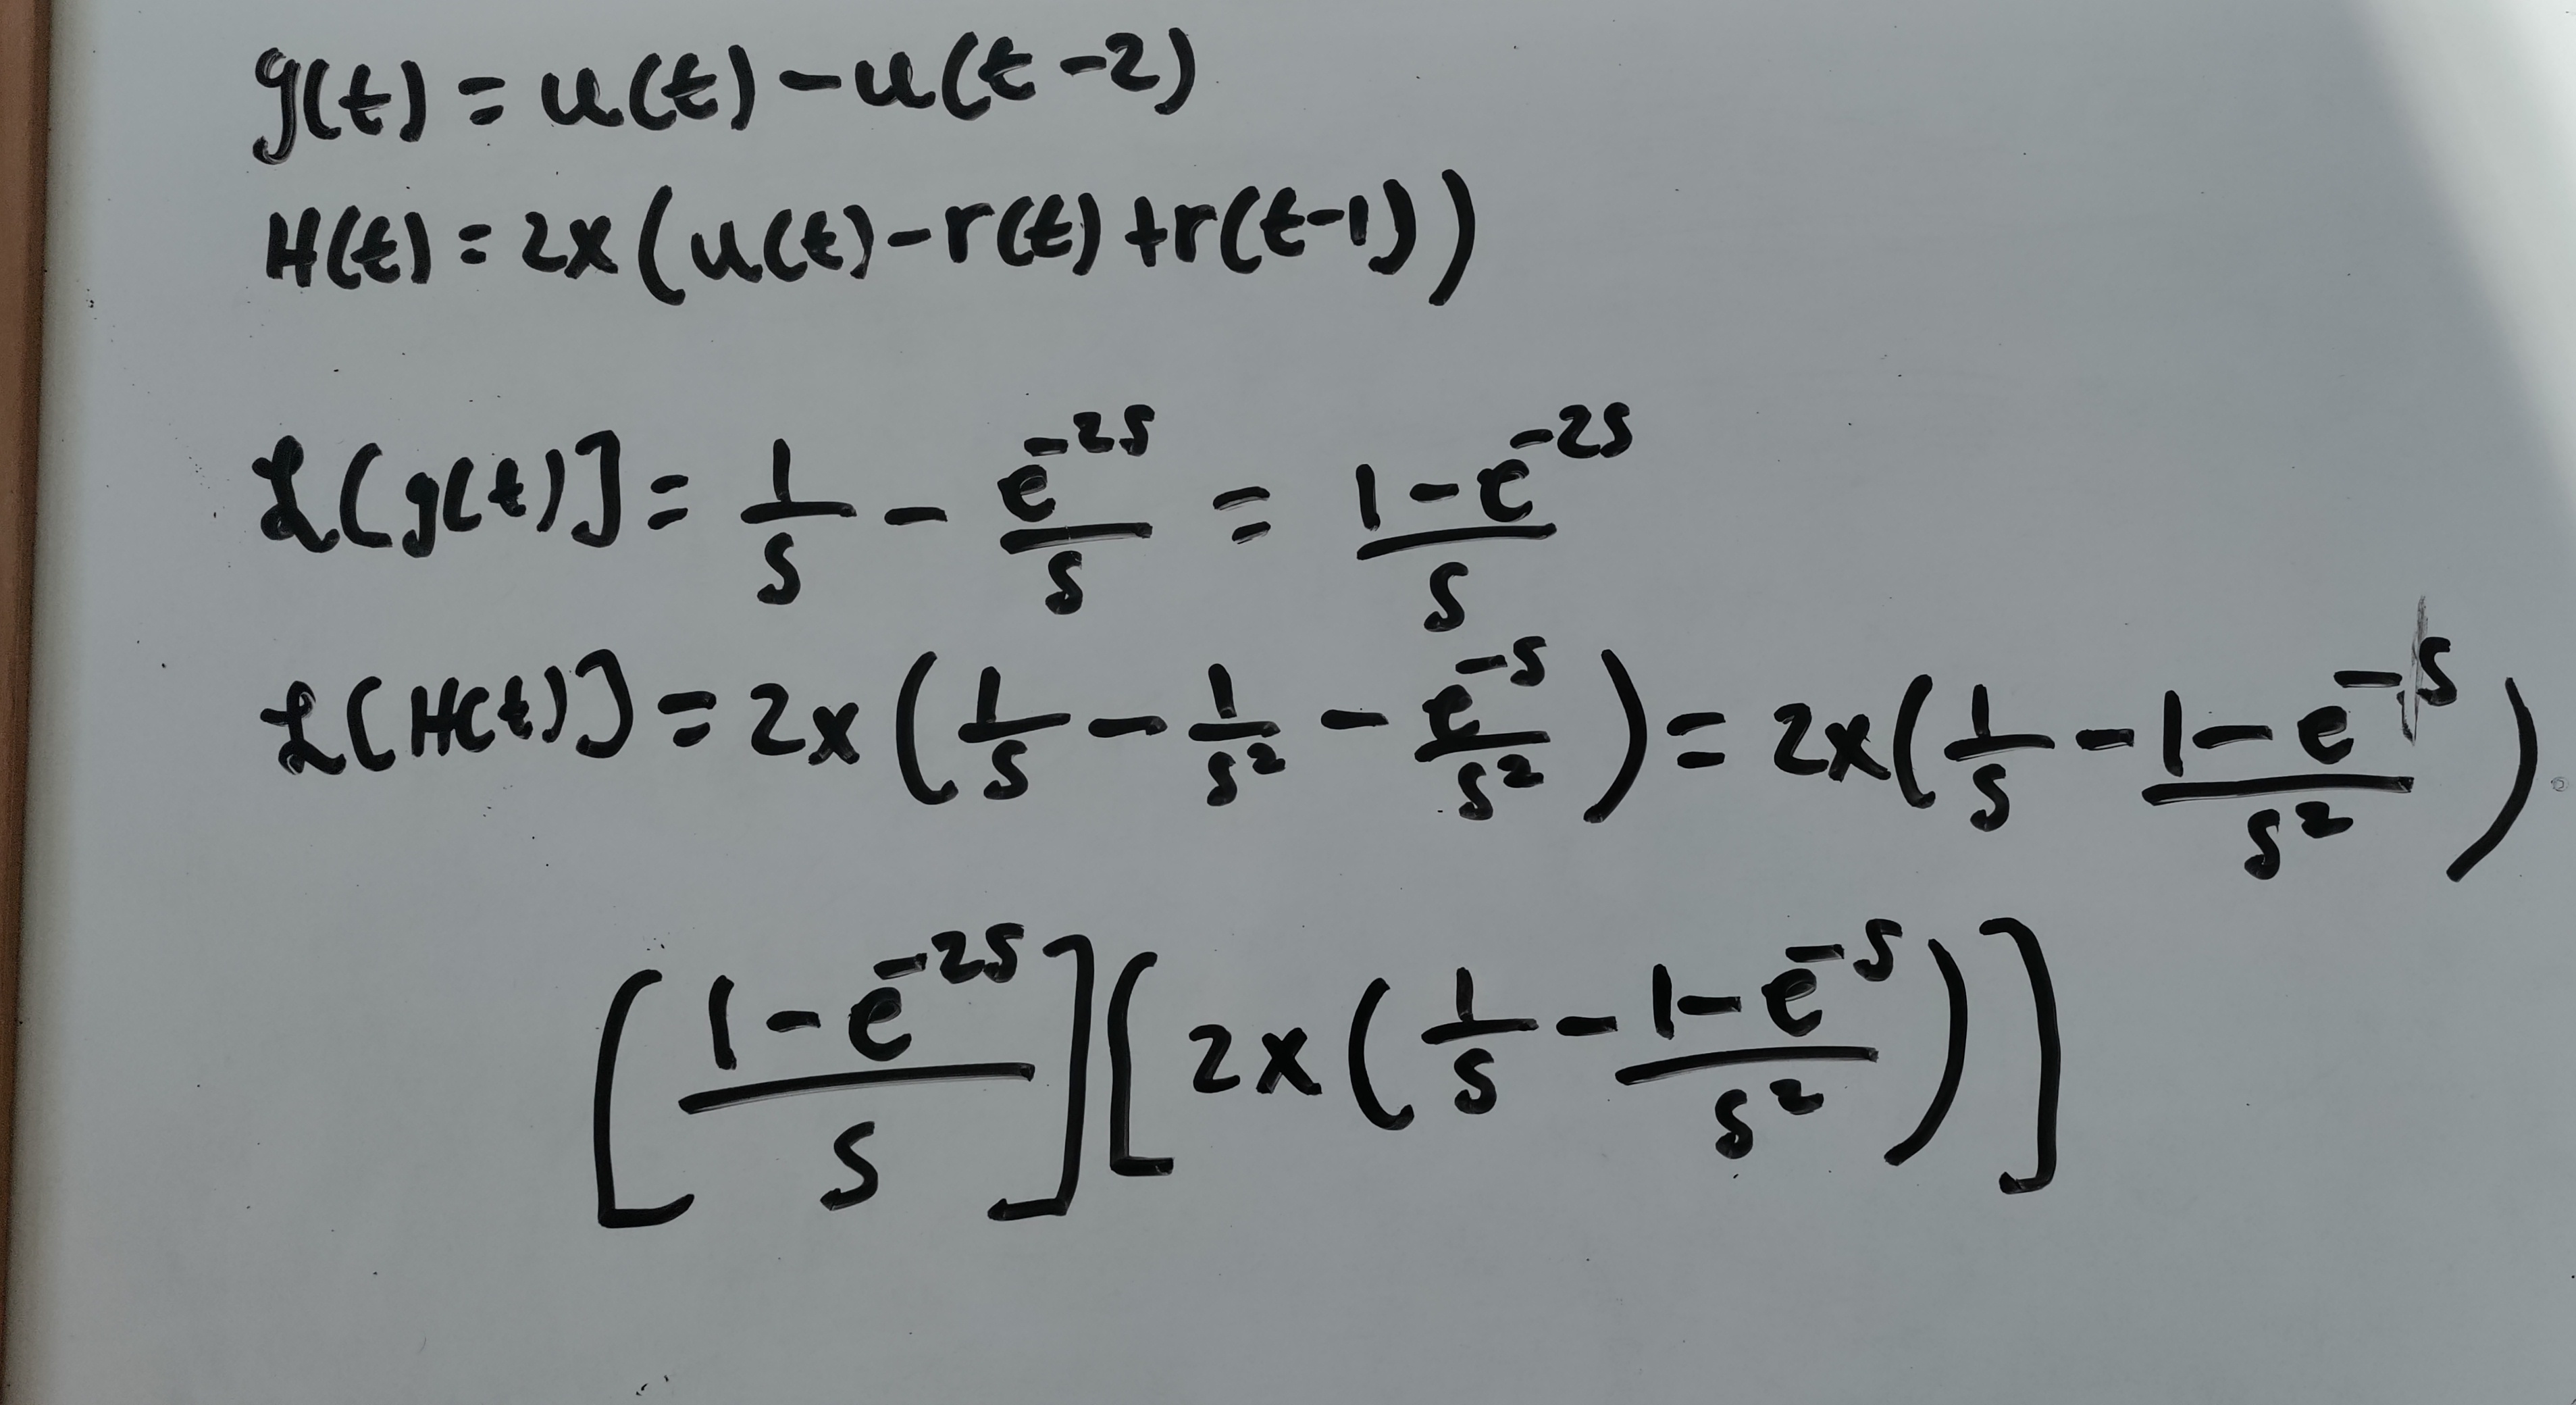 g(t) = u(t) - u(t-2)
H(t) = 2x(u(t) - r(t) + r(t-1))
ℒ[g(t)] = 1/s - e^{-2s}/s = (1-e^{-2s})/s
ℒ[H(t)] = 2x(1/s - 1/s² - e^{-s}/s²) = 2x(1/s - (1-e^{-s})/s²)
[(1-e^{-2s})/s][2x(1/s - (1-e^{-s})/s²)]